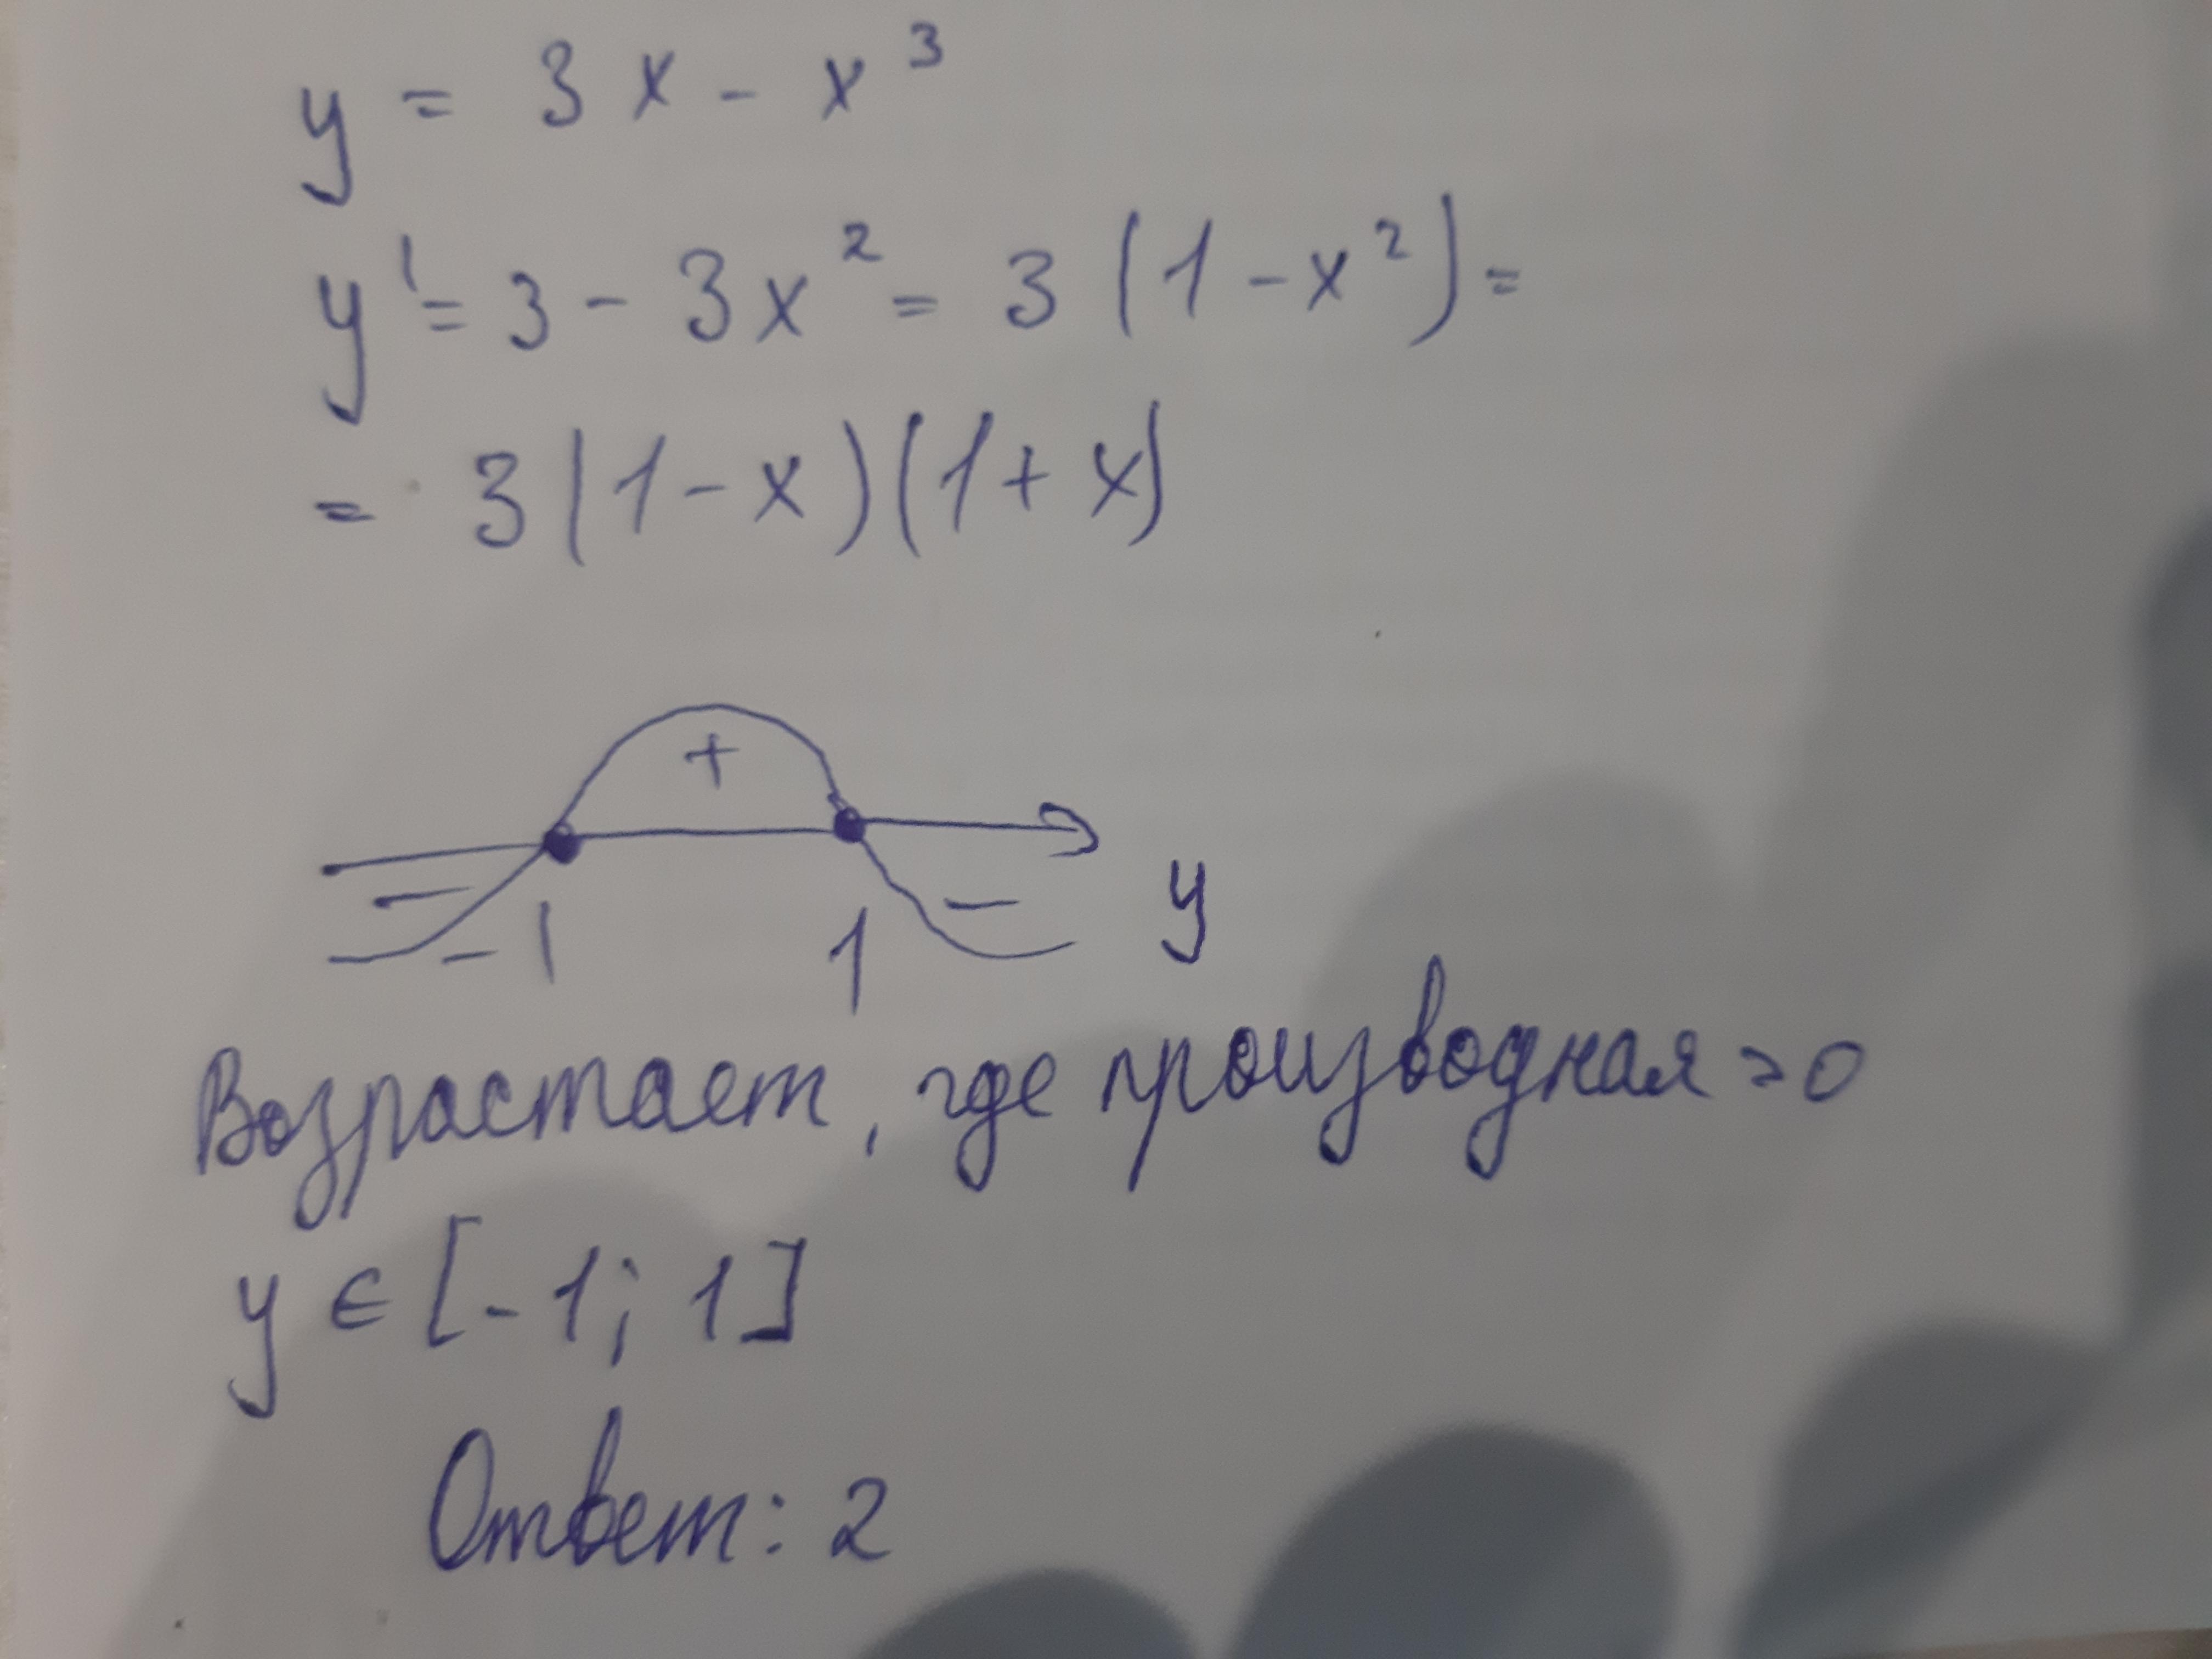 y = 3x - x³
y' = 3 - 3x² = 3(1 - x²) =
= 3(1 - x)(1 + x)
+
- -
-1 1 y
Возрастает, где производная >0
y ∈ [-1; 1]
Ответ: 2